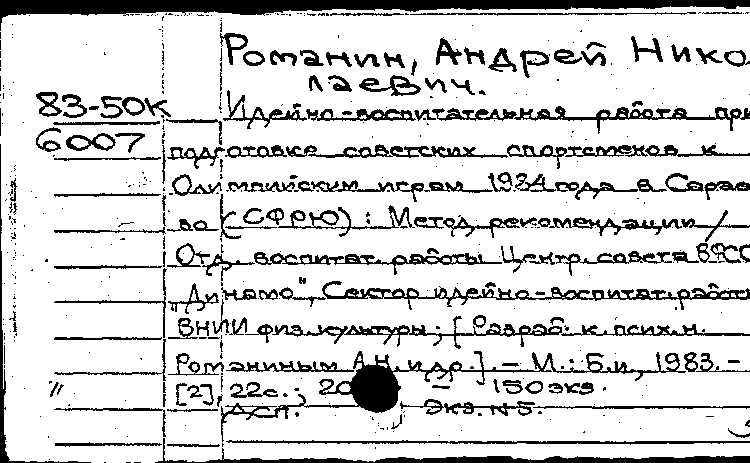 Романин, Андрей Нико
лаевич.
83-50К
6007
Идейно-воспитательная работа при
подготовке советских спортсменов к
Олимпийским играм 1984 года в Сарае
во (СФРЮ): Метод. рекомендации /
Отд. воспитат. работы Центр. совета ВФСО
"Динамо", Сектор идейно-воспитат. работы
ВНИИ физ. культуры; [Разраб. к. псих. н.
Романиным А.Н. и др.]. – М.: Б.и., 1983. –
[2], 22с.; 20 – 150 экз.
ДСП. Экз. №5.